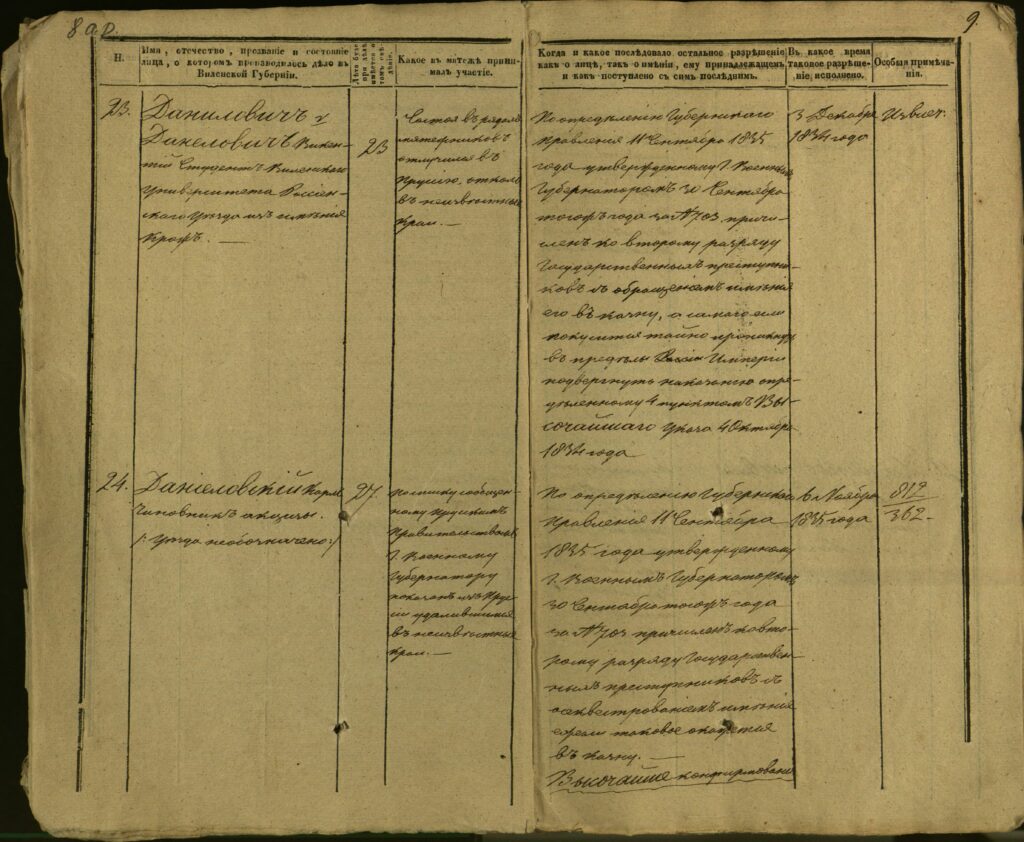 8 об.
9.
Н.
Имя, отчество, прозваніе и состояніе
лица, о которомъ производилось дѣло въ
Виленской Губерніи.
Какое въ мятежѣ прини-
малъ участіе.
Когда и какое послѣдовало остальное разрѣшеніе
какъ о лицѣ, такъ о имѣніи, ему принадлежащемъ,
и какъ поступлено съ симъ послѣднимъ.
Въ какое время
таковое разрѣше-
ніе, исполнено.
Особыя примѣча-
нія.
23.
Даниловичъ и
Данеловичъ Викен-
тій Студентъ Виленскаго
Университета Россіен-
скаго Уѣзда изъ имѣнія
23
Состоя въ рядахъ
мятежниковъ
отличился въ
Пруссію, отколь
въ неизвѣстный
край. —
По опредѣленію Губернскаго
Правленія 11 Сентября 1835
года утвержденному Г. Военнымъ
Губернаторомъ 30 Сентября
тогожъ года за № 703 причи-
сленъ ко второму разряду
Государственныхъ преступни-
ковъ съ обращеніемъ имѣнія
его въ казну, а самаго если
покусится тайно проникнуть
въ предѣлы Имперіи
подвергнуть наказанію опре-
дѣленному 4 пунктомъ Вы-
сочайшаго Указа 4 Октября
1834 года
3 Декабря
1834 года
24.
Даніеловскій Карлъ
Чиновникъ акцизы.
/: Уѣзда необозначено :/
27.
По списку сообщен-
ному Прусскимъ
Правительствомъ
Г. Военному
Губернатору
показанъ изъ Прус-
сіи удалившимся
въ неизвѣстный
край. —
По опредѣленію Губернскаго
Правленія 11 Сентября
1835 года утвержденному
Г. Военнымъ Губернаторомъ
30 Сентября тогожъ года
за № 703 причисленъ ко вто-
рому разряду Государствен-
ныхъ преступниковъ съ
секвестрованіемъ имѣнія
если таковое окажется
въ казну. —
Высочайше конфирмовано
6 Ноября
1835 года
812
362 -